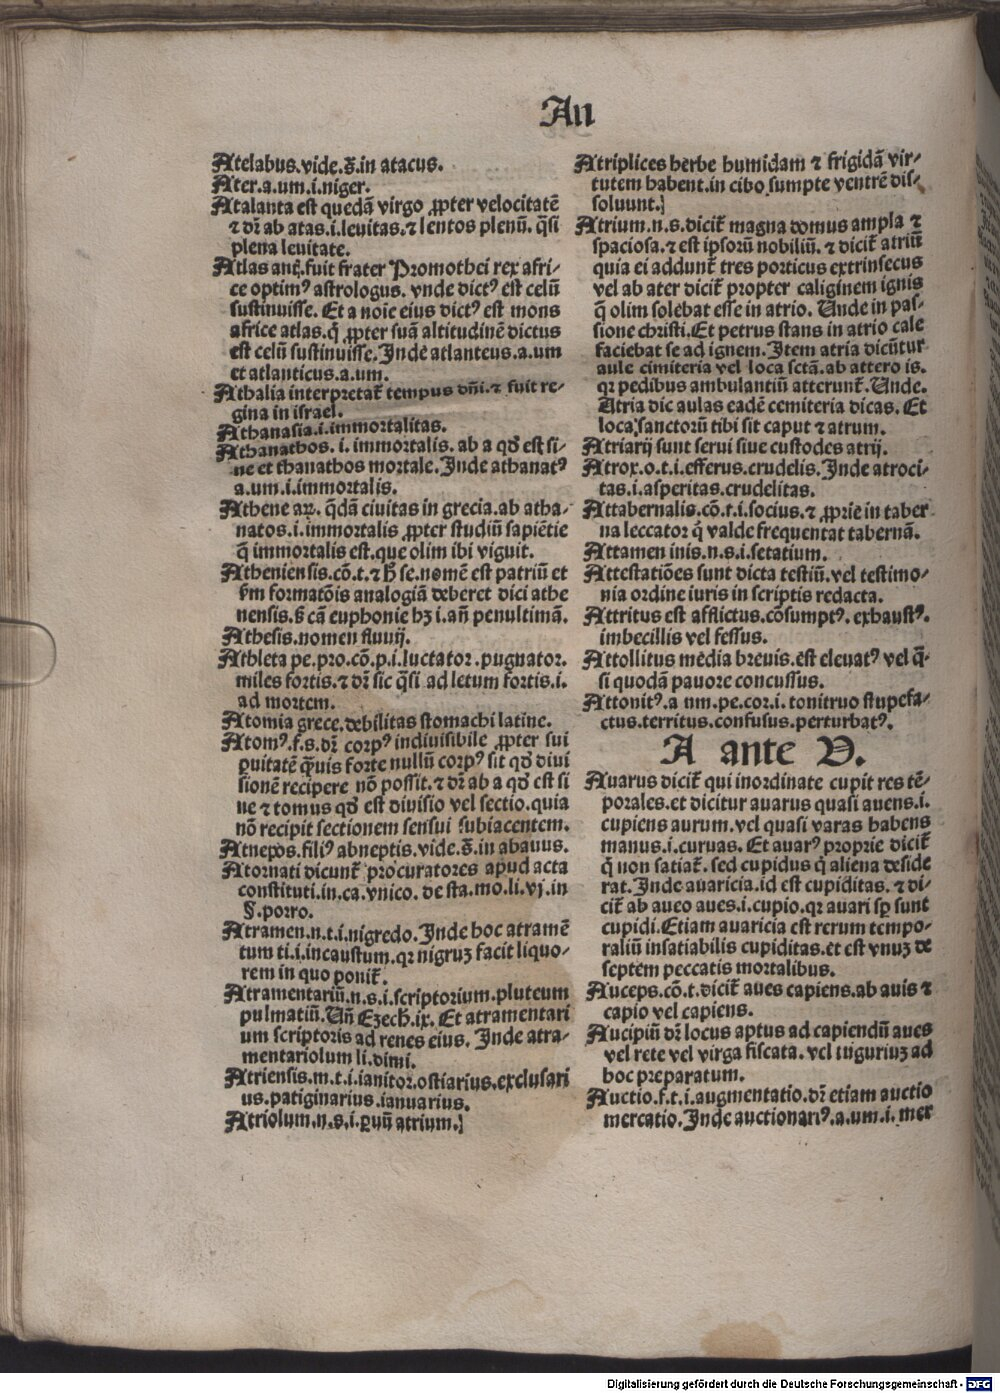 An
Atelabus.vide.s̄.in atacus.
Ater.a.um.i.niger.
Atalanta est quedā virgo ꝓpter velocitatē
⁊ dr̄ ab atas.i.leuitas.⁊ lentos plenū. q̄si
plena leuitate.
Atlas antꝗ̄.fuit frater Promothei rex afri-
ce optimꝰ astrologus. vnde dictꝰ est celū
sustinuisse. Et a noīe eius dictꝰ est mons
africe atlas.q̇ ꝓpter suā altitudinē dictus
est celū sustinuisse. Inde atlanteus.a.um
et atlanticus.a.um.
Athalia interpretat̄ tempus dn̄i.⁊ fuit re-
gina in israel.
Athanasia.i.immortalitas.
Athanathos. i. immortalis. ab a qd̄ est si-
ne et thanathos mortale. Inde athanatꝰ
a.um.i.immortalis.
Athene aꝝ. q̄dā ciuitas in grecia.ab atha-
natos.i.immortalis ꝓpter studiū sapiētie
q̄ immortalis est.que olim ibi viguit.
Atheniensis.cō.t.⁊ h̄ se.nomē est patriū et
ẜm formatōis analogiā deberet dici athe
nensis.ß cā euphonie hꝫ i.añ penultimā.
Athesis.nomen fluuij.
Athleta pe.pro.cō.p.i.luctator.pugnator.
miles fortis.⁊ dr̄ sic q̄si ad letum fortis.i.
ad mortem.
Atomia grece.debilitas stomachi latine.
Atomꝰ.f.s.dr̄ corpꝰ indiuisibile ꝓpter sui
ꝑuitatē q̄uis forte nullū corpꝰ sit qd̄ diui
sionē recipere nō possit.⁊ dr̄ ab a qd̄ est si
ne ⁊ tomus qd̄ est diuisio vel sectio.quia
nō recipit sectionem sensui subiacentem.
Atnepos.filiꝰ abneptis.vide.s̄.in abauus.
Atornati dicunt̄ procuratores apud acta
constituti.in.ca.vnico. de sta.mo.li.vj.in
§.porro.
Atramen.n.t.i.nigredo. Inde hoc atramē
tum ti.i.incaustum.qꝛ nigruꝫ facit liquo-
rem in quo ponit̄.
Atramentariū.n.s.i.scriptorium.pluteum
pulmatiū. Uñ Ezech.ix. Et atramentari
um scriptoris ad renes eius. Inde atra-
mentariolum li.dimi.
Atriensis.m.t.i.ianitor.ostiarius.exclusari
us.patiginarius.ianuarius.
Atriolum.n.s.i.ꝑuū atrium.]
Atriplices herbe humidam ⁊ frigidā vir-
tutem habent.in cibo sumpte ventrē dis-
soluunt.]
Atrium.n.s.dicit̄ magna domus ampla ⁊
spaciosa.⁊ est ipsorū nobiliū. ⁊ dicit̄ atriū
quia ei addunt̄ tres porticus extrinsecus
vel ab ater dicit̄ propter caliginem ignis
q̄ olim solebat esse in atrio. Unde in pas-
sione christi.Et petrus stans in atrio cale
faciebat se ad ignem. Item atria dicūtur
aule cimiteria vel loca sctā.ab attero is.
qꝛ pedibus ambulantiū atterunt̄. Unde.
Atria dic aulas eadē cemiteria dicas. Et
loca sanctorū tibi sit caput ⁊ atrum.
Atriarij sunt serui siue custodes atrij.
Atrox.o.t.i.efferus.crudelis. Inde atroci-
tas.i.asperitas.crudelitas.
Attabernalis.cō.t.i.socius.⁊ ꝓprie in taber
na leccator q̇ valde frequentat tabernā.
Attamen inis.n.s.i.setatium.
Attestatiōes sunt dicta testiū.vel testimo-
nia ordine iuris in scriptis redacta.
Attritus est afflictus.cōsumptꝰ. exhaustꝰ.
imbecillis vel fessus.
Attollitus media breuis.est eleuatꝰ vel q̄-
si quodā pauore concussus.
Attonitꝰ.a um.pe.cor.i. tonitruo stupefa-
ctus.territus.confusus.perturbatꝰ.
A ante V.
Auarus dicit̄ qui inordinate cupit res tē-
porales.et dicitur auarus quasi auens.i.
cupiens aurum.vel quasi varas habens
manus.i.curuas. Et auarꝰ proprie dicit̄
q̇ non satiat̄. sed cupidus q̇ aliena deside
rat. Inde auaricia.id est cupiditas. ⁊ di-
cit̄ ab aueo aues.i.cupio.qꝛ auari sꝑ sunt
cupidi.Etiam auaricia est rerum tempo-
raliū insatiabilis cupiditas.et est vnuꝫ de
septem peccatis mortalibus.
Auceps.cō.t.dicit̄ aues capiens.ab auis ⁊
capio vel capiens.
Aucipiū dr̄ locus aptus ad capiendū aues
vel rete vel virga fiscata. vel tuguriuꝫ ad
hoc preparatum.
Auctio.f.t.i.augmentatio.dr̄ etiam auctio
mercatio. Inde auctionariꝰ.a.um.i.mer
Digitalisierung gefördert durch die Deutsche Forschungsgemeinschaft - DFG